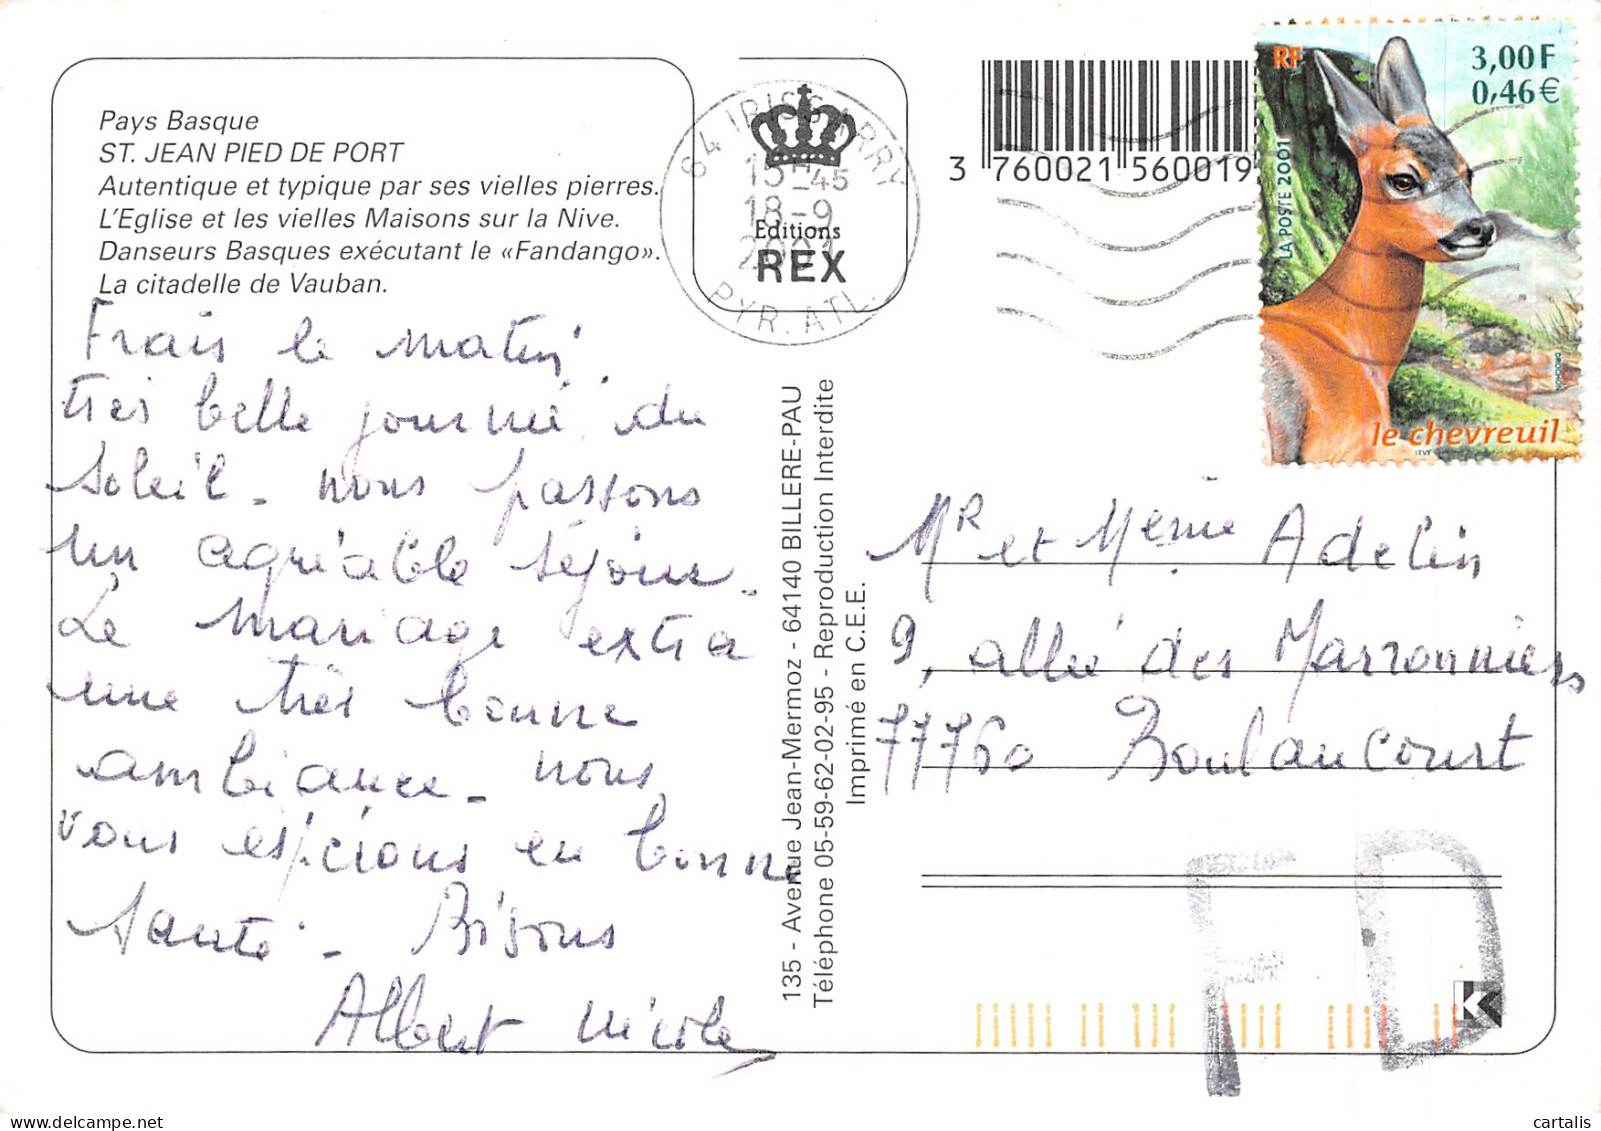 Pays Basque
ST. JEAN PIED DE PORT
Autentique et typique par ses vielles pierres.
L'Eglise et les vielles Maisons sur la Nive.
Danseurs Basques exécutant le «Fandango».
La citadelle de Vauban.
Frais le matin
très belle journée du
soleil - nous passons
un agréable séjour.
Le mariage extra
une très bonne
ambiance - nous
vous espérons en bonne
santé - Bisous
Albert Nicole
64 IRISSARRY
15-45
18-9
2001
PYR. ATL.
Editions
REX
3 760021 560019
RF
3,00 F
0,46 €
LA POSTE 2001
DROCHON
ITVF
le chevreuil
135 - Avenue Jean-Mermoz - 64140 BILLERE-PAU
Téléphone 05-59-62-02-95 - Reproduction Interdite
Imprimé en C.E.E.
Mr et Mme Adelin
9, allée des Marronniers
77760 Boulancourt
FD
K
cartalis
www.delcampe.net